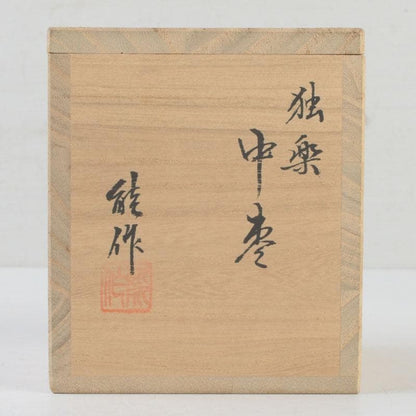 独楽
中棗
能作